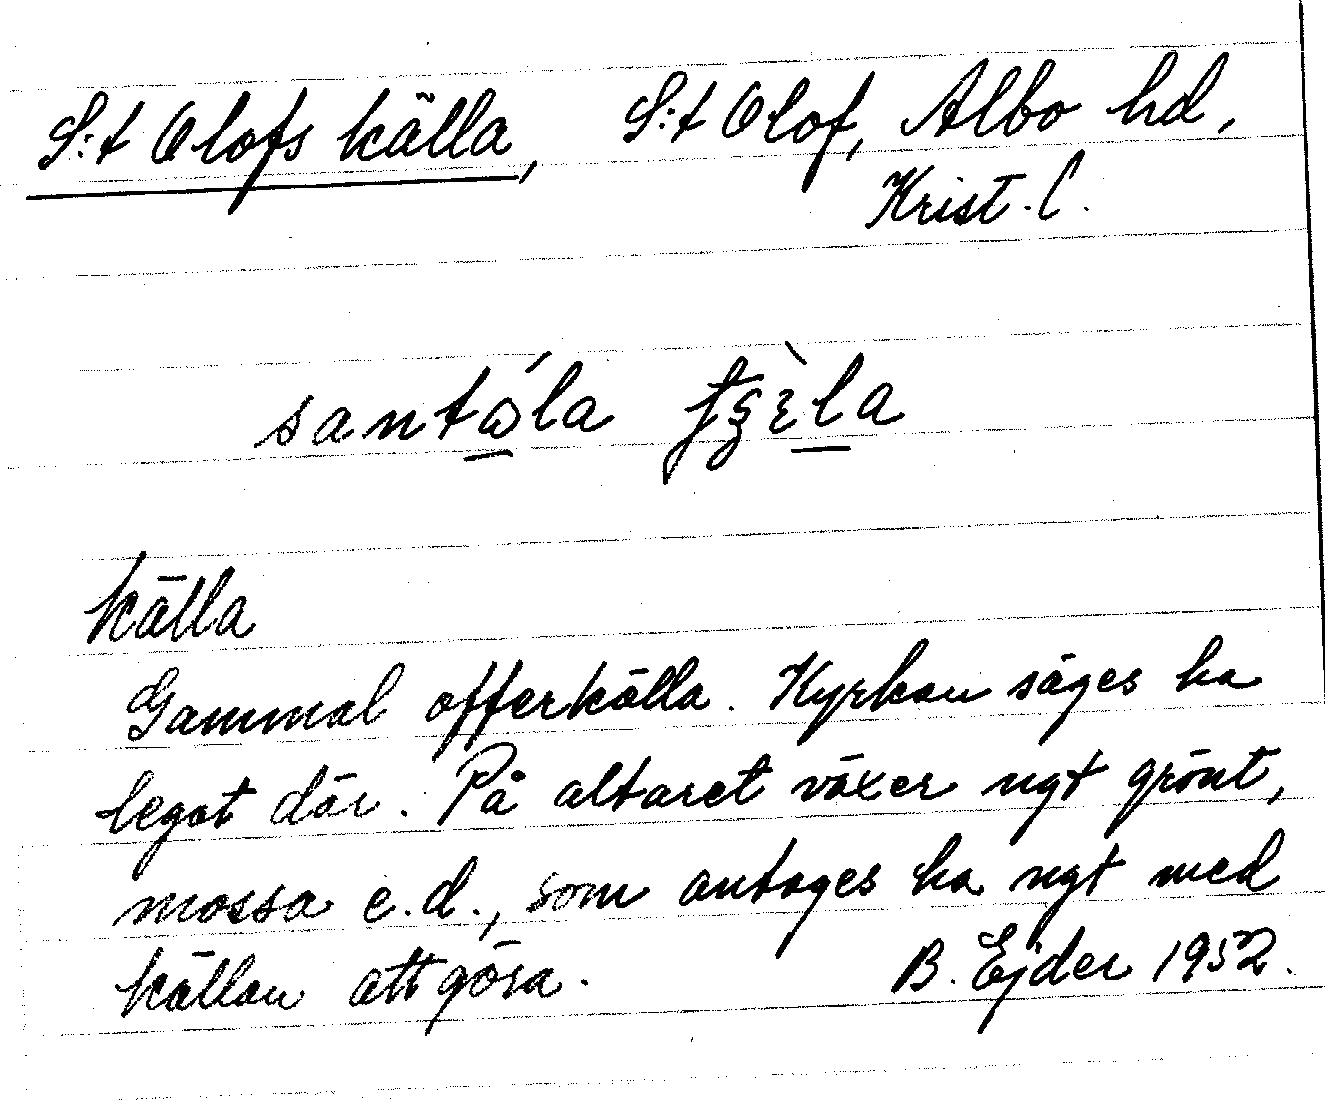 S:t Olofs källa, S:t Olof, Albo hd,
Krist. l.
santǫ́la
källa
Gammal offerkälla. Kyrkan säges ha
legat där. På altaret växer ngt grönt,
mossa e.d., som antages ha ngt med
källan att göra. B. Ejder 1952.